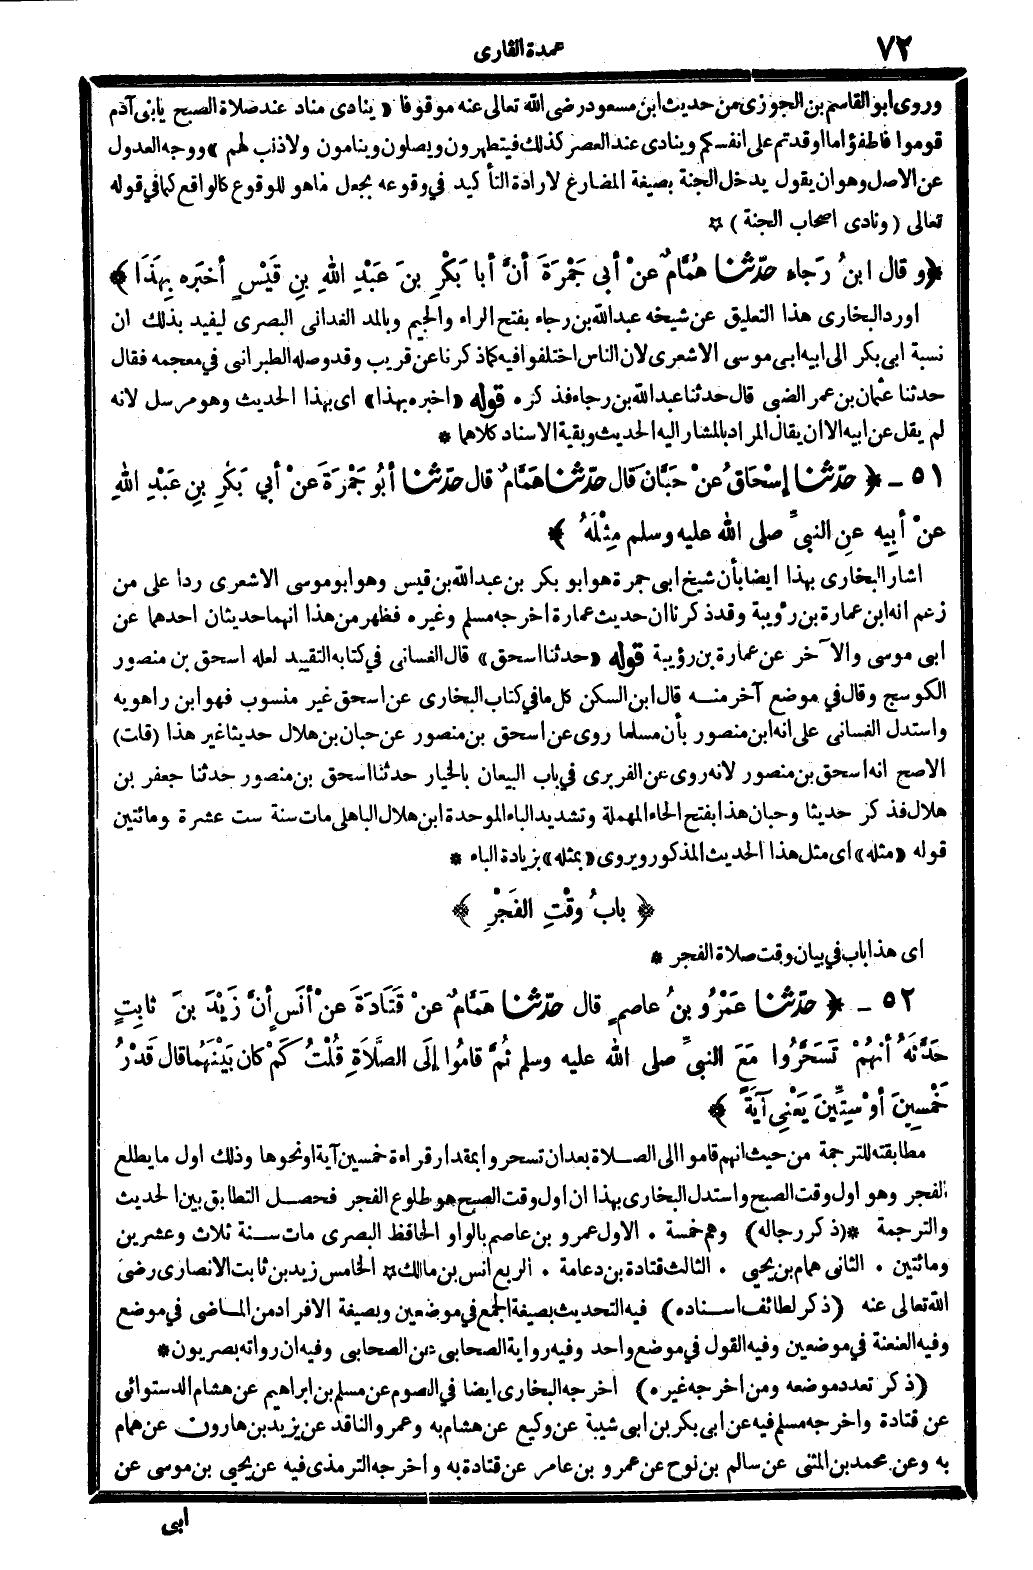 ٧٢
عمدة القارى
وروى ابو القاسم بن الجوزى من حديث ابن مسعود رضى الله تعالى عنه موقوفا « ينادى مناد عند صلاة الصبح يابنى آدم
قوموا فاطفؤا ما اوقدتم على انفسكم وينادى عند العصر كذلك فيتطهرون ويصلون وينامون ولاذنب لهم » ووجه العدول
عن الاصل وهو ان يقول يدخل الجنة بصيغة المضارع لارادة التأكيد فى وقوعه بجعل ماهو للوقوع كالواقع كما فى قوله
تعالى ( ونادى اصحاب الجنة ) ☆
﴿ وقال ابنُ رَجاء حدّثنا هُمَّامٌ عنْ أبي جَمْرَةَ أنَّ أبا بَكْرِ بنَ عَبْدِ اللهِ بنِ قَيْسٍ أخبَره بِهَذَا ﴾
اورد البخارى هذا التعليق عن شيخه عبد الله بن رجاء بفتح الراء والجيم وبالمد الغدانى البصرى ليفيد بذلك ان
نسبة ابى بكر الى ابيه ابى موسى الاشعرى لان الناس اختلفوا فيه كما ذكرنا عن قريب وقد وصله الطبرانى فى معجمه فقال
حدثنا عثمان بن عمر الضبى قال حدثنا عبد الله بن رجاء فذكره قوله « اخبره بهذا » اى بهذا الحديث وهو مرسل لانه
لم يقل عن ابيه الا ان يقال المراد بالمشار اليه الحديث وبقية الاسناد كلاهما *
٥١ ـ ﴿ حدّثنا إسْحَاقُ عنْ حَبَّانَ قال حدّثنا هَمَّامٌ قال حدّثنا أبُو جَمْرَةَ عنْ أبي بَكْرِ بنِ عَبْدِ اللهِ
عنْ أبِيه عنِ النبيِّ صلى الله عليه وسلم مِثْلَهُ ﴾
اشار البخارى بهذا ايضا بأن شيخ ابى جمرة هو ابو بكر بن عبد الله بن قيس وهو ابو موسى الاشعرى ردا على من
زعم انه ابن عمارة بن رؤيبة وقد ذكرنا ان حديث عمارة اخرجه مسلم وغيره فظهر من هذا انهما حديثان احدهما عن
ابى موسى والآخر عن عمارة بن رؤيبة قوله « حدثنا اسحق » قال الغسانى فى كتابه التقييد لعله اسحق بن منصور
الكوسج وقال فى موضع آخر منه قال ابن السكن كل ما فى كتاب البخارى عن اسحق غير منسوب فهو ابن راهويه
واستدل الغسانى على انه ابن منصور بأن مسلما روى عن اسحق بن منصور عن حبان بن هلال حديثا غير هذا (قات)
الاصح انه اسحق بن منصور لانه روى عن الفربرى فى باب البيعان بالخيار حدثنا اسحق بن منصور حدثنا جعفر بن
هلال فذكر حديثا وحبان هذا بفتح الحاء المهملة وتشديد الباء الموحدة ابن هلال الباهلى مات سنة ست عشرة ومائتين
قوله « مثله » اى مثل هذا الحديث المذكور ويروى « بمثله » بزيادة الباء *
﴿ بابُ وقْتِ الفَجْرِ ﴾
اى هذا باب فى بيان وقت صلاة الفجر *
٥٢ ـ ﴿ حدّثنا عَمْرُو بنُ عاصمٍ قال حدّثنا هَمَّامٌ عنْ قَتَادَةَ عنْ أنَسٍ أنَّ زَيْدَ بنَ ثابِتٍ
حَدَّثَهُ أنهُمْ تَسَحَّرُوا مَعَ النبيِّ صلى الله عليه وسلم ثُمَّ قامُوا إلَى الصَّلَاةِ قُلْتُ كَمْ كان بَيْنَهُما قال قَدْرُ
خَمْسِينَ أوْ سِتِّينَ يَعْنِى آيَةً ﴾
مطابقته للترجمة من حيث انهم قاموا الى الصلاة بعد ان تسحروا بمقدار قراءة خمسين آية او نحوها وذلك اول ما يطلع
الفجر وهو اول وقت الصبح واستدل البخارى بهذا ان اول وقت الصبح هو طلوع الفجر فحصل التطابق بين الحديث
والترجمة *(ذكر رجاله) وهم خمسة . الاول عمرو بن عاصم بالواو الحافظ البصرى مات سنة ثلاث وعشرين
ومائتين . الثانى همام بن يحيى . الثالث قتادة بن دعامة . الربع انس بن مالك ☆ الخامس زيد بن ثابت الانصارى رضى
الله تعالى عنه (ذكر لطائف اسناده) فيه التحديث بصيغة الجمع فى موضعين وبصيغة الافراد من الماضى فى موضع
وفيه العنعنة فى موضعين وفيه القول فى موضع واحد وفيه رواية الصحابى عن الصحابى وفيه ان رواته بصريون *
(ذكر تعدد موضعه ومن اخرجه غيره) اخرجه البخارى ايضا فى الصوم عن مسلم بن ابراهيم عن هشام الدستوائى
عن قتادة واخرجه مسلم فيه عن ابى بكر بن ابى شيبة عن وكيع عن هشام به وعمرو الناقد عن يزيد بن هارون عن همام
به وعن محمد بن المثنى عن سالم بن نوح عن عمرو بن عامر عن قتادة به واخرجه الترمذى فيه عن يحيى بن موسى عن
ابى